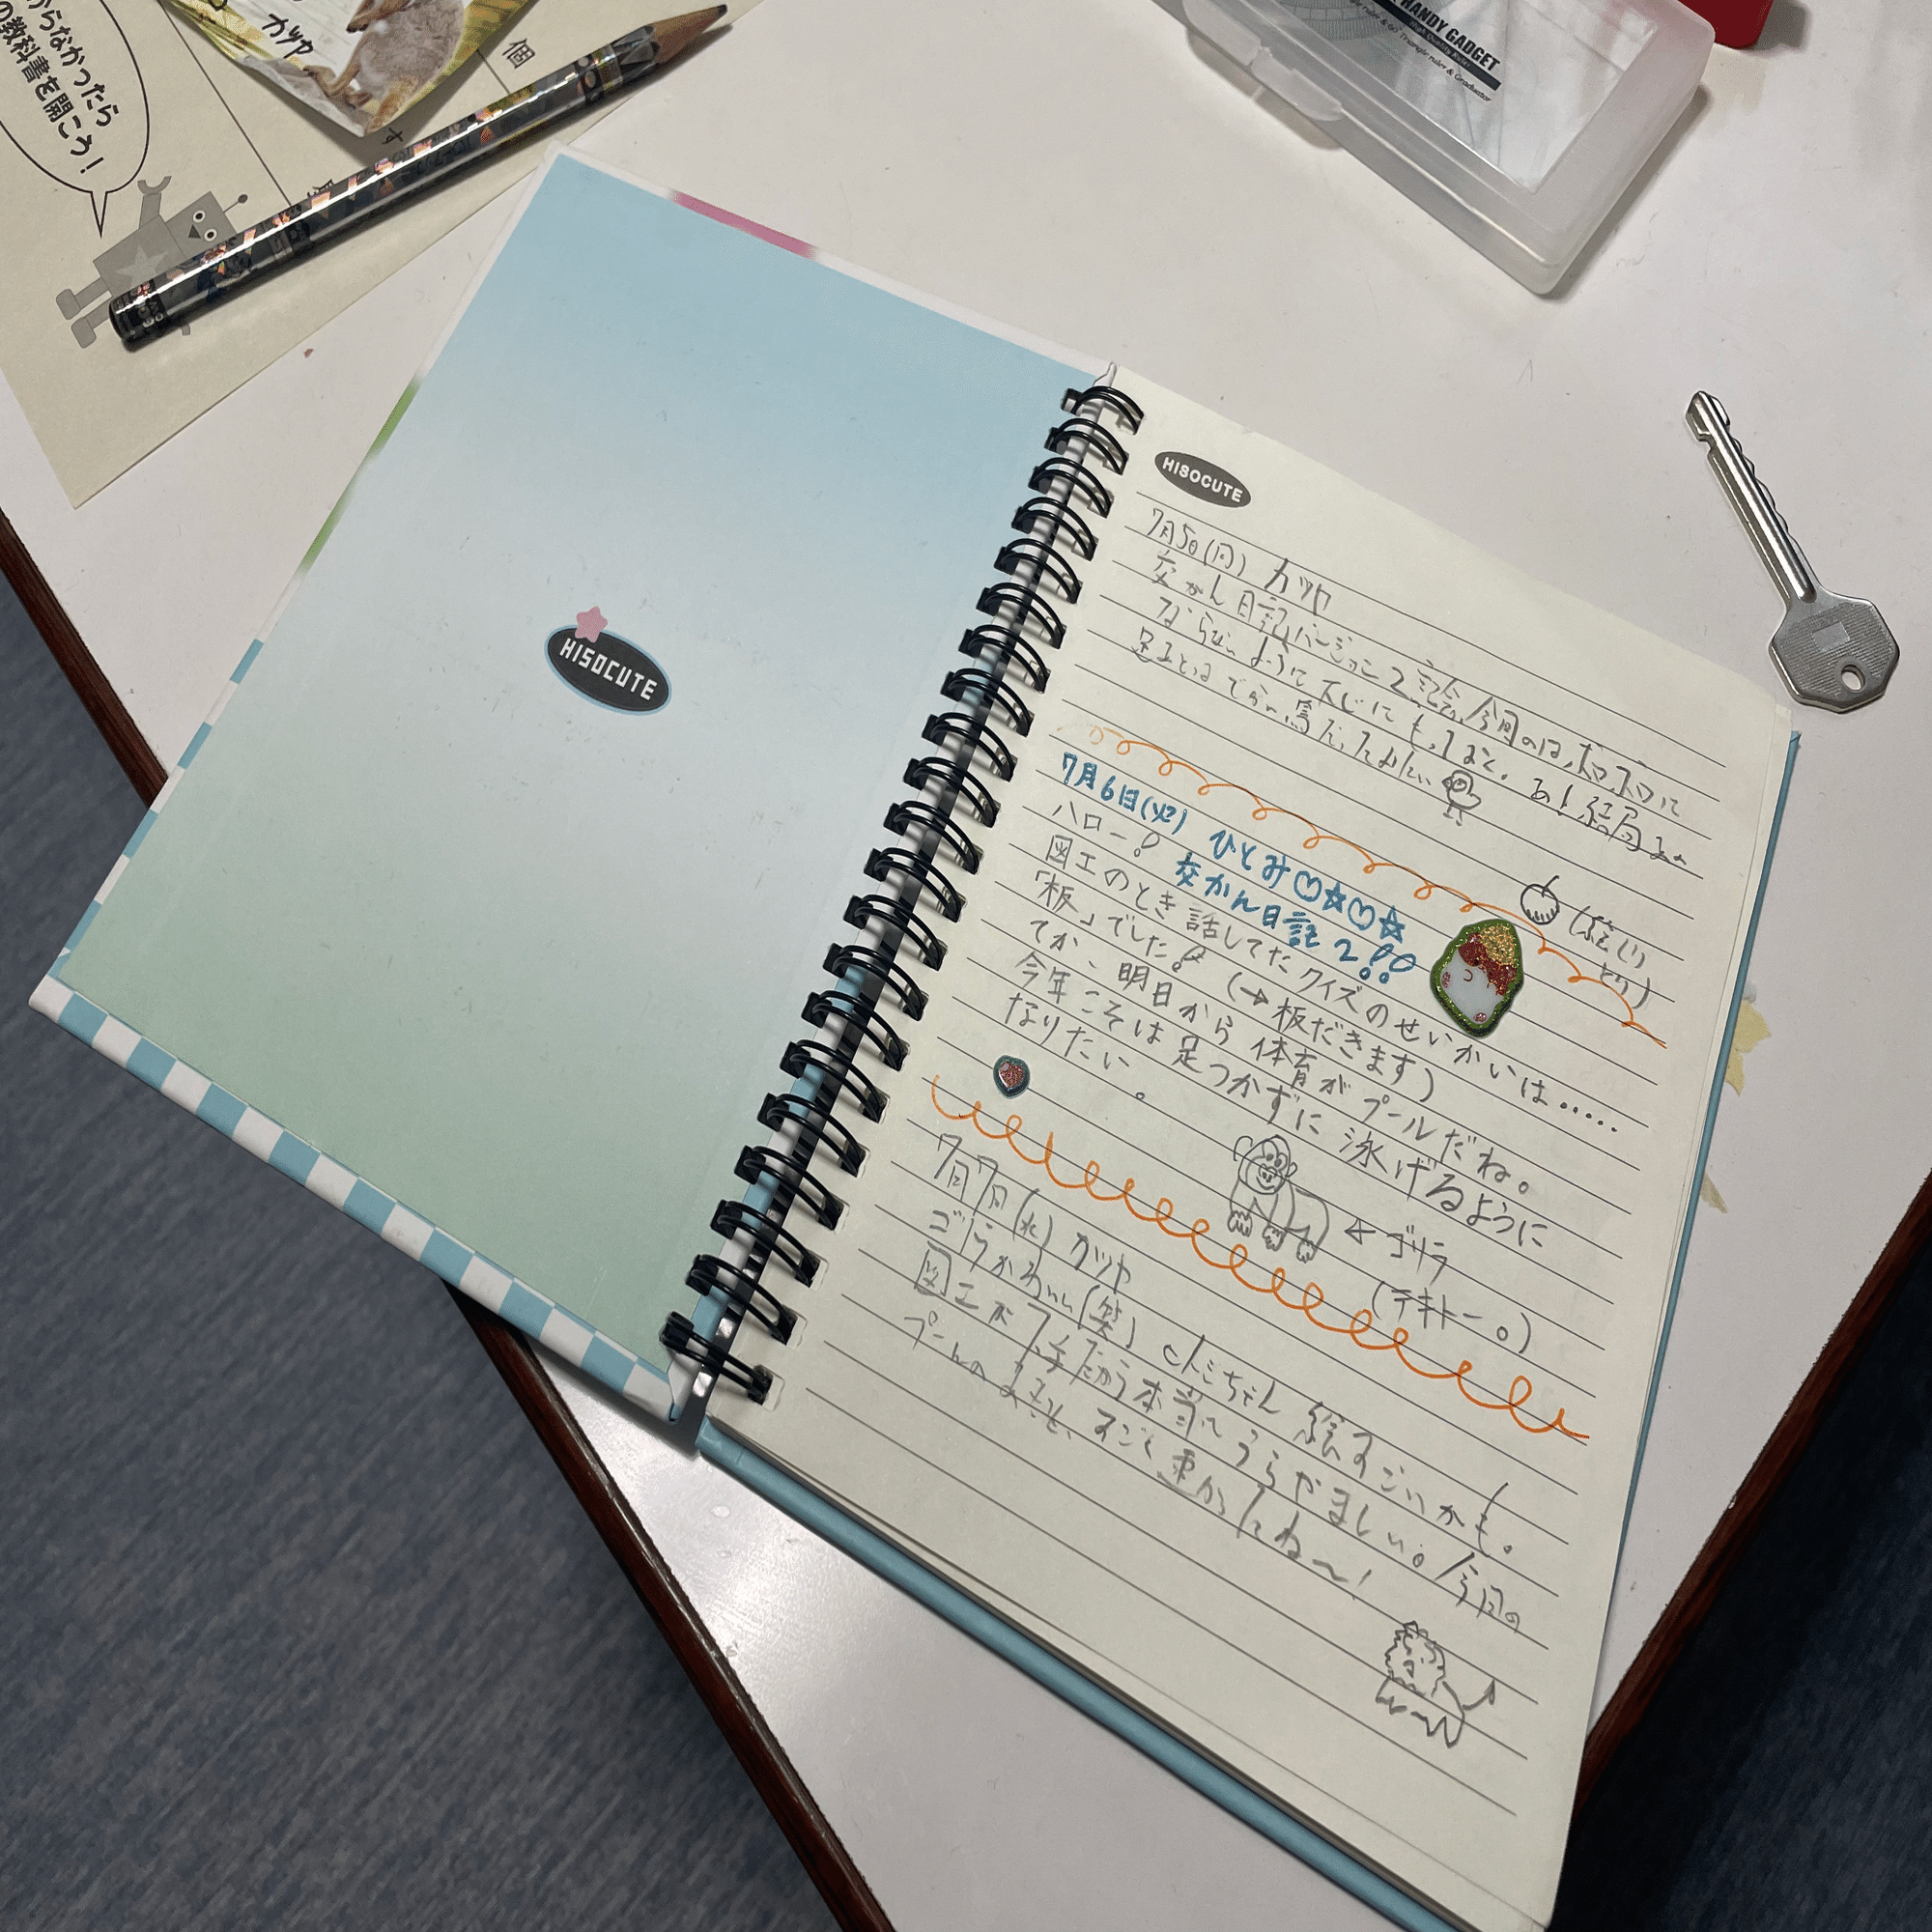 からなかったら
の教科書を開こう!
カツヤ
個
す
HANDY GADGET
HISOCUTE
HISOCUTE
7月5日(月) カツヤ
交かん日記バージョン2記念。今回のは、ボロボロに
ならないように大じにもってまーす。あ!結局
7月6日(火) ひとみ♡☆♡☆
ハロー! 交かん日記2!!
図工のとき話してたクイズのせいかいは.....
「板」でした! (→板だきます)
てか、明日から体育がプールだね。
今年こそは足つかずに泳げるように
なりたい。
(絵じり
とり)
←ゴリラ
(テキトー。)
7月7日(水) カツヤ
ゴリラかわいい(笑) ヒトミちゃん絵すごいかも。
図工が入手だから本当にうらやましい。今日の
プールのあと、すごく重かったね〜!